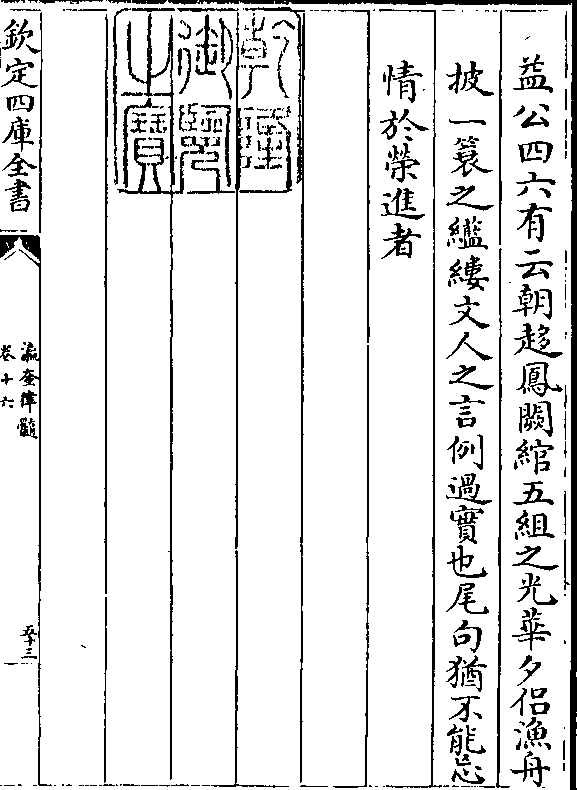 益公四六有云朝趍鳳闕綰五組之光華夕侶漁舟
披一蓑之繿縷文人之言例過實也尾句猶不能忘
情於榮進者
乾隆
御覽
之寳
欽定四庫全書
瀛奎律髓
卷十六
五十三